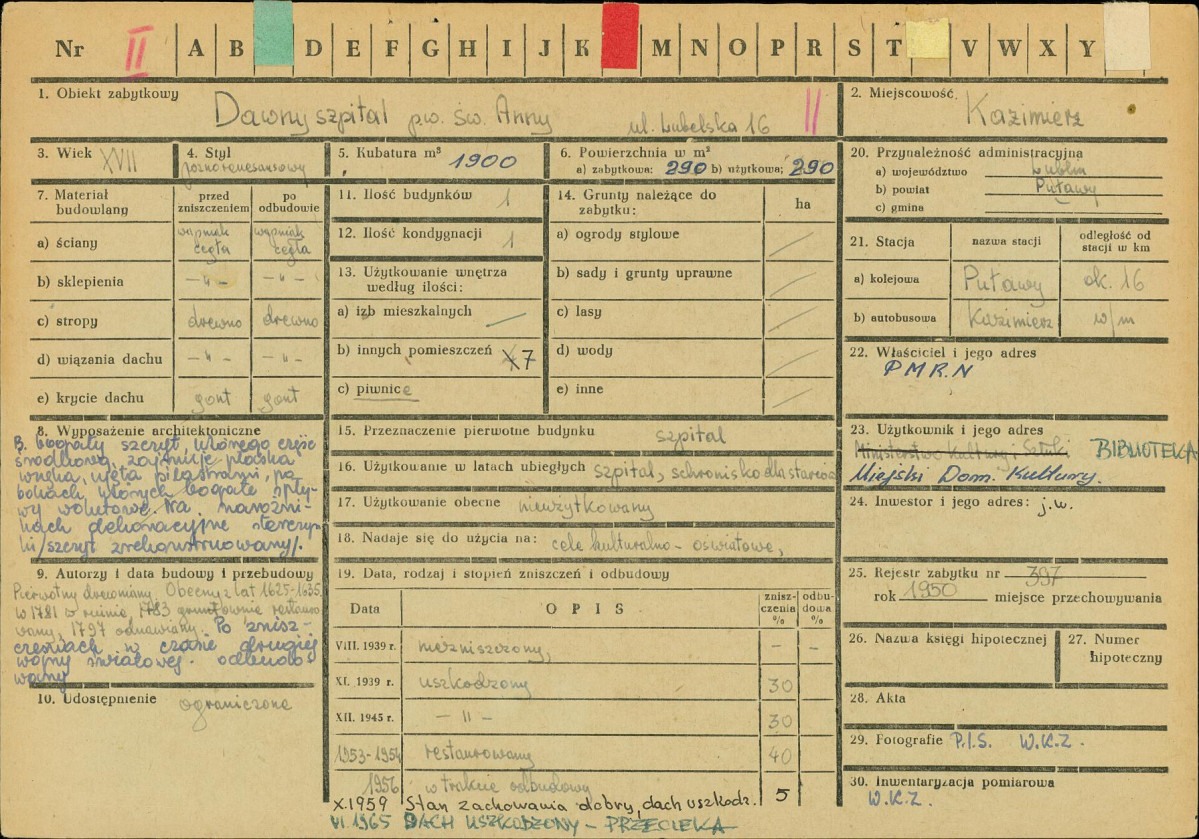 Nr II A B D E F G H I J K M N O P R S T V W X Y
1. Obiekt zabytkowy
Dawny szpital p.w. św. Anny ul. Lubelska 16 II
2. Miejscowość
Kazimierz
3. Wiek XVII
4. Styl
późnorenesansowy
5. Kubatura m³
1900
6. Powierzchnia w m²
a) zabytkowa: 290 b) użytkowa: 290
7. Materiał
budowlany
przed
zniszczeniem
po
odbudowie
a) ściany
wapniak
cegła
wapniak
cegła
b) sklepienia -"- -"-
c) stropy drewno drewno
d) wiązania dachu -"- -"-
e) krycie dachu gont gont
8. Wyposażenie architektoniczne
B. bogaty szczyt, którego część
środkową zajmuje płaska
wnęka, ujęta pilastrami, po
bokach których bogate spły-
wy wolutowe. Na narożni-
kach dekoracyjne sterczyn-
ki /szczyt zrekonstruowany/.
9. Autorzy i data budowy i przebudowy
Pierwotny drewniany. Obecny z lat 1625-1635,
w 1781 w ruinie, 1783 gruntownie restauro
wany, 1797 odnawiany. Po znisz-
czeniach w czasie drugiej
wojny światowej odbudo-
wany
10. Udostępnienie ograniczone
11. Ilość budynków 1
12. Ilość kondygnacji 1
13. Użytkowanie wnętrza
według ilości:
a) izb mieszkalnych
b) innych pomieszczeń 7
c) piwnice
14. Grunty należące do
zabytku:
ha
a) ogrody stylowe
b) sady i grunty uprawne
c) lasy
d) wody
e) inne
15. Przeznaczenie pierwotne budynku szpital
16. Użytkowanie w latach ubiegłych szpital, schronisko dla starców
17. Użytkowanie obecne nieużytkowany
18. Nadaje się do użycia na: cele kulturalno-oświatowe,
19. Data, rodzaj i stopień zniszczeń i odbudowy
Data
OPIS
znisz-
czenia
%
odbu-
dowa
%
VIII. 1939 r. niezniszczony, - -
XI. 1939 r. uszkodzony 30
XII. 1945 r. -"- 30
1953-1954 restaurowany 40
1956 w trakcie odbudowy
X.1959 Stan zachowania dobry, dach uszkodz. 5
VI 1965 DACH USZKODZONY - PRZECIEKA
20. Przynależność administracyjna
a) województwo Lublin
b) powiat Puławy
c) gmina
21. Stacja
nazwa stacji
odległość od
stacji w km
a) kolejowa Puławy ok. 16
b) autobusowa Kazimierz w/m
22. Właściciel i jego adres
P.M.R.N
23. Użytkownik i jego adres
Ministerstwo Kultury i Sztuki BIBLIOTEKA
Miejski Dom. Kultury.
24. Inwestor i jego adres: j.w.
25. Rejestr zabytku nr 397
rok 1950 miejsce przechowywania
26. Nazwa księgi hipotecznej
27. Numer
hipoteczny
28. Akta
29. Fotografie P.I.S. W.K.Z.
30. Inwentaryzacja pomiarowa
W.K.Z.